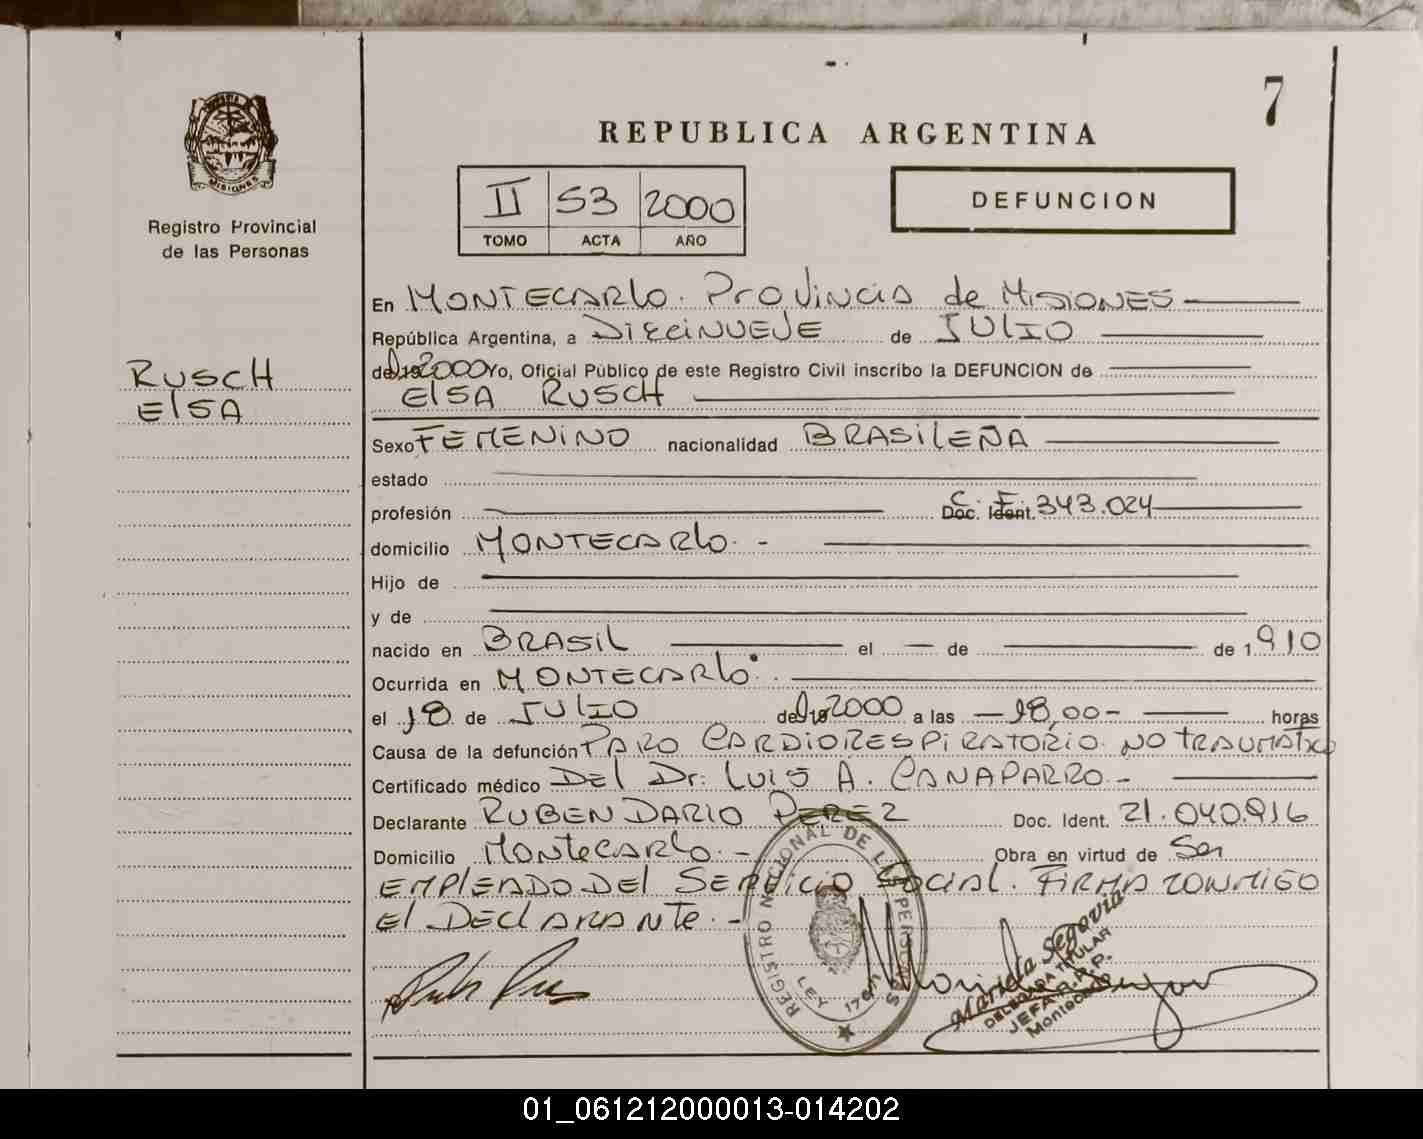 7
REPUBLICA ARGENTINA
MISIONES
Registro Provincial
de las Personas
II 53 2000
TOMO ACTA AÑO
DEFUNCION
RUSCH
ElSA
En MONTECARlo. Provincia de MISIONES
República Argentina, a DIECINUEVE de JULIO
de 2000 Yo, Oficial Público de este Registro Civil inscribo la DEFUNCION de
ElSA RUSCH
Sexo FEMENINO nacionalidad BRASILEÑA
estado
profesión C. I. Doc. Ident. 343.024
domicilio MONTECARlo. -
Hijo de
y de
nacido en BRASIL el de de 1.910
Ocurrida en MONTECARlo.
el 18 de JULIO del 2000 a las - 18,00 - horas
Causa de la defunción PARO CARDIORESPIRATORIO NO TRAUMATICO
Certificado médico DEl Dr: LUIS A. CANAPARRO. -
Declarante RUBEN DARIO PEREZ Doc. Ident. 21.040.916
Domicilio MONTECARlo. - Obra en virtud de Ser
EMPLEADO DEl SERVICIO SOCIAL. FIRMA CONMIGO
El DEClARANTE. -
REGISTRO NACIONAL DE LAS PERSONAS
LEY 17671
Mariela Segovia
DELEGADA TITULAR
JEFA R.P.P.
01_061212000013-014202